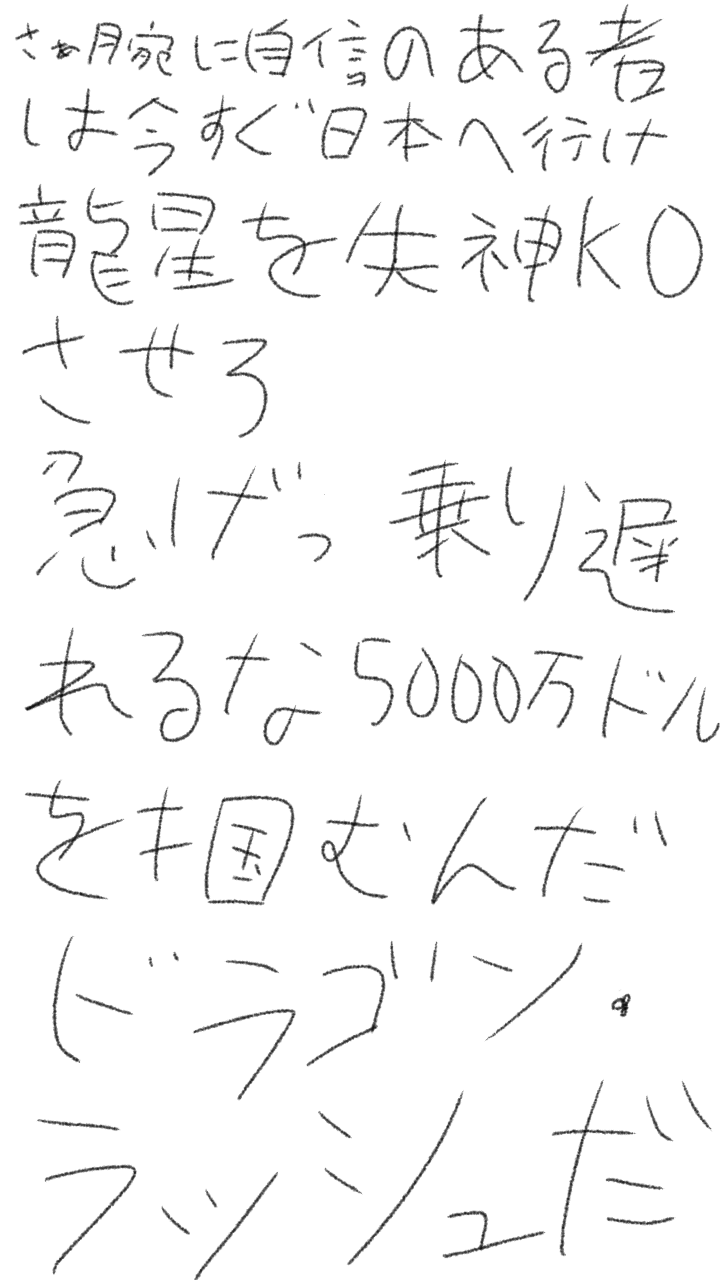 さぁ腕に自信のある者
は今すぐ日本へ行け
龍星を失神KO
させろ
急げっ 乗り遅
れるな5000万ドル
を掴むんだ
ドラゴン・
ラッシュだ